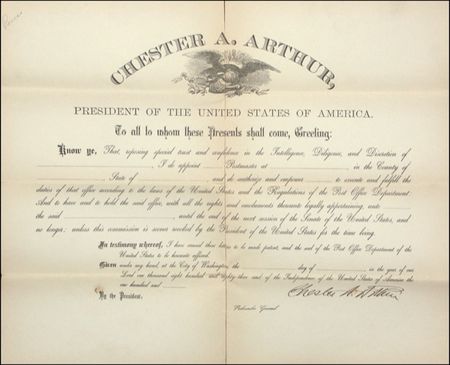 CHESTER A. ARTHUR,
PRESIDENT OF THE UNITED STATES OF AMERICA.
To all to whom these Presents shall come, Greeting:
Know ye, That, reposing special trust and confidence in the Intelligence, Diligence, and Discretion of
, I do appoint Postmaster at , in the County of
, State of , and do authorize and empower to execute and fulfill the
duties of that office according to the laws of the United States and the Regulations of the Post Office Department.
And to have and to hold the said office, with all the rights and emoluments thereunto legally appertaining unto
the said , until the end of the next session of the Senate of the United States, and
no longer; unless this commission is sooner revoked by the President of the United States for the time being.
In testimony whereof, I have caused these letters to be made patent, and the seal of the Post Office Department of the
United States to be hereunto affixed.
Given under my hand, at the City of Washington, the day of , in the year of our
Lord one thousand eight hundred and eighty three and of the Independence of the United States of America the
one hundred and
Chester A. Arthur
By the President.
Postmaster General